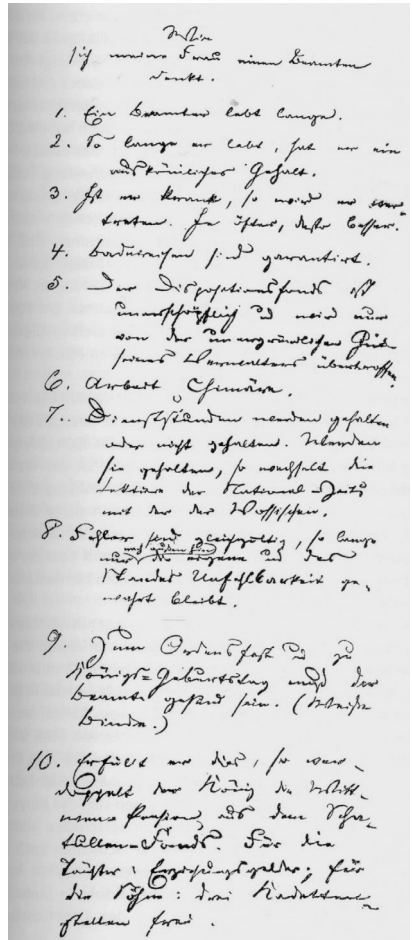 Wie
sich meine Frau einen Beamten
denkt.
1. Ein Beamter lebt lange.
2. So lange er lebt, hat er ein
auskömmliches Gehalt.
3. Ist er krank, so wird er ver-
treten. Je öfter, desto besser.
4. Badereisen sind garantirt.
5. Der Dispositionsfonds ist
unerschöpflich und wird nur
von der unergründlichen Güte
seines Verwalters übertroffen.
6. Arbeit Chimäre.
7. Dienststunden werden gehalten
oder nicht gehalten. Werden
sie gehalten, so wechselt die
Lektüre der National-Zeitg
mit der der Vossischen.
8. Fehler sind gleichgültig, so lange
nach außen hin
nur die eigene und des
Standes Unfehlbarkeit ge-
wahrt bleibt.
9. Zum Ordensfest und zu
Königs-Geburtstag muß der
Beamte gesund sein. (Weiße
Binde.)
10. Erfüllt er dies, so ver-
doppelt der König die Witt-
wen-Pension aus dem Scha-
tullen-Fonds. Für die
Töchter: Erziehungsgelder; für
die Söhne: drei Kadetten-
stellen frei.